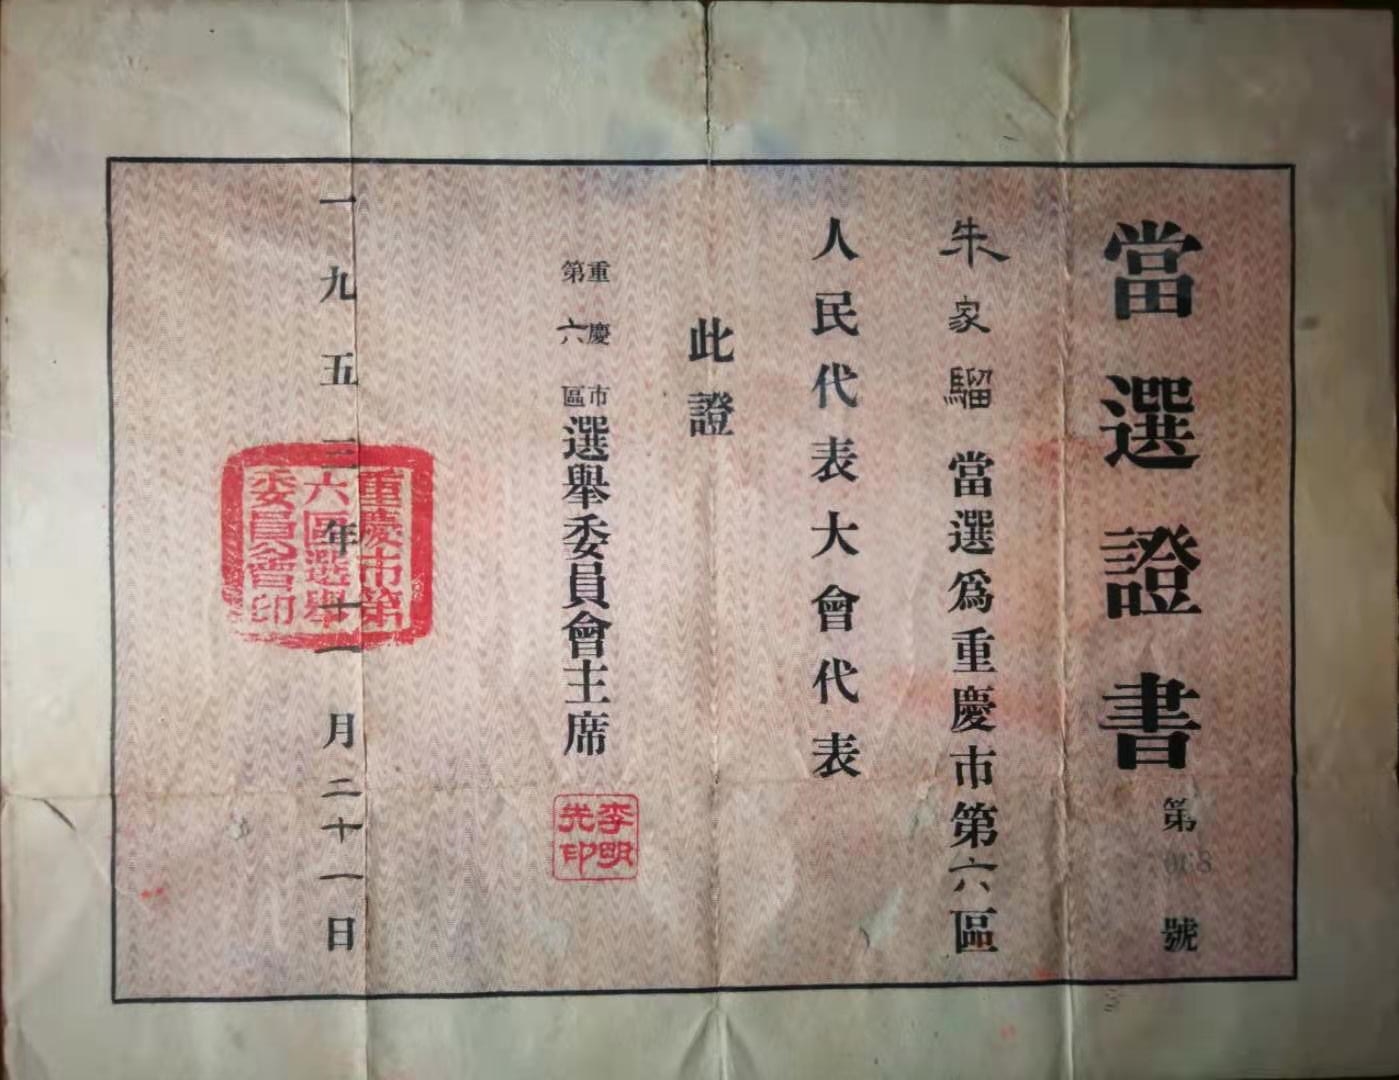 當選證書
第068號
朱家騮當選爲重慶市第六區
人民代表大會代表
此證
重慶市
第六區
選舉委員會主席
李明
光印
一九五三年十一月二十一日
重慶市第
六區選舉
委員會印